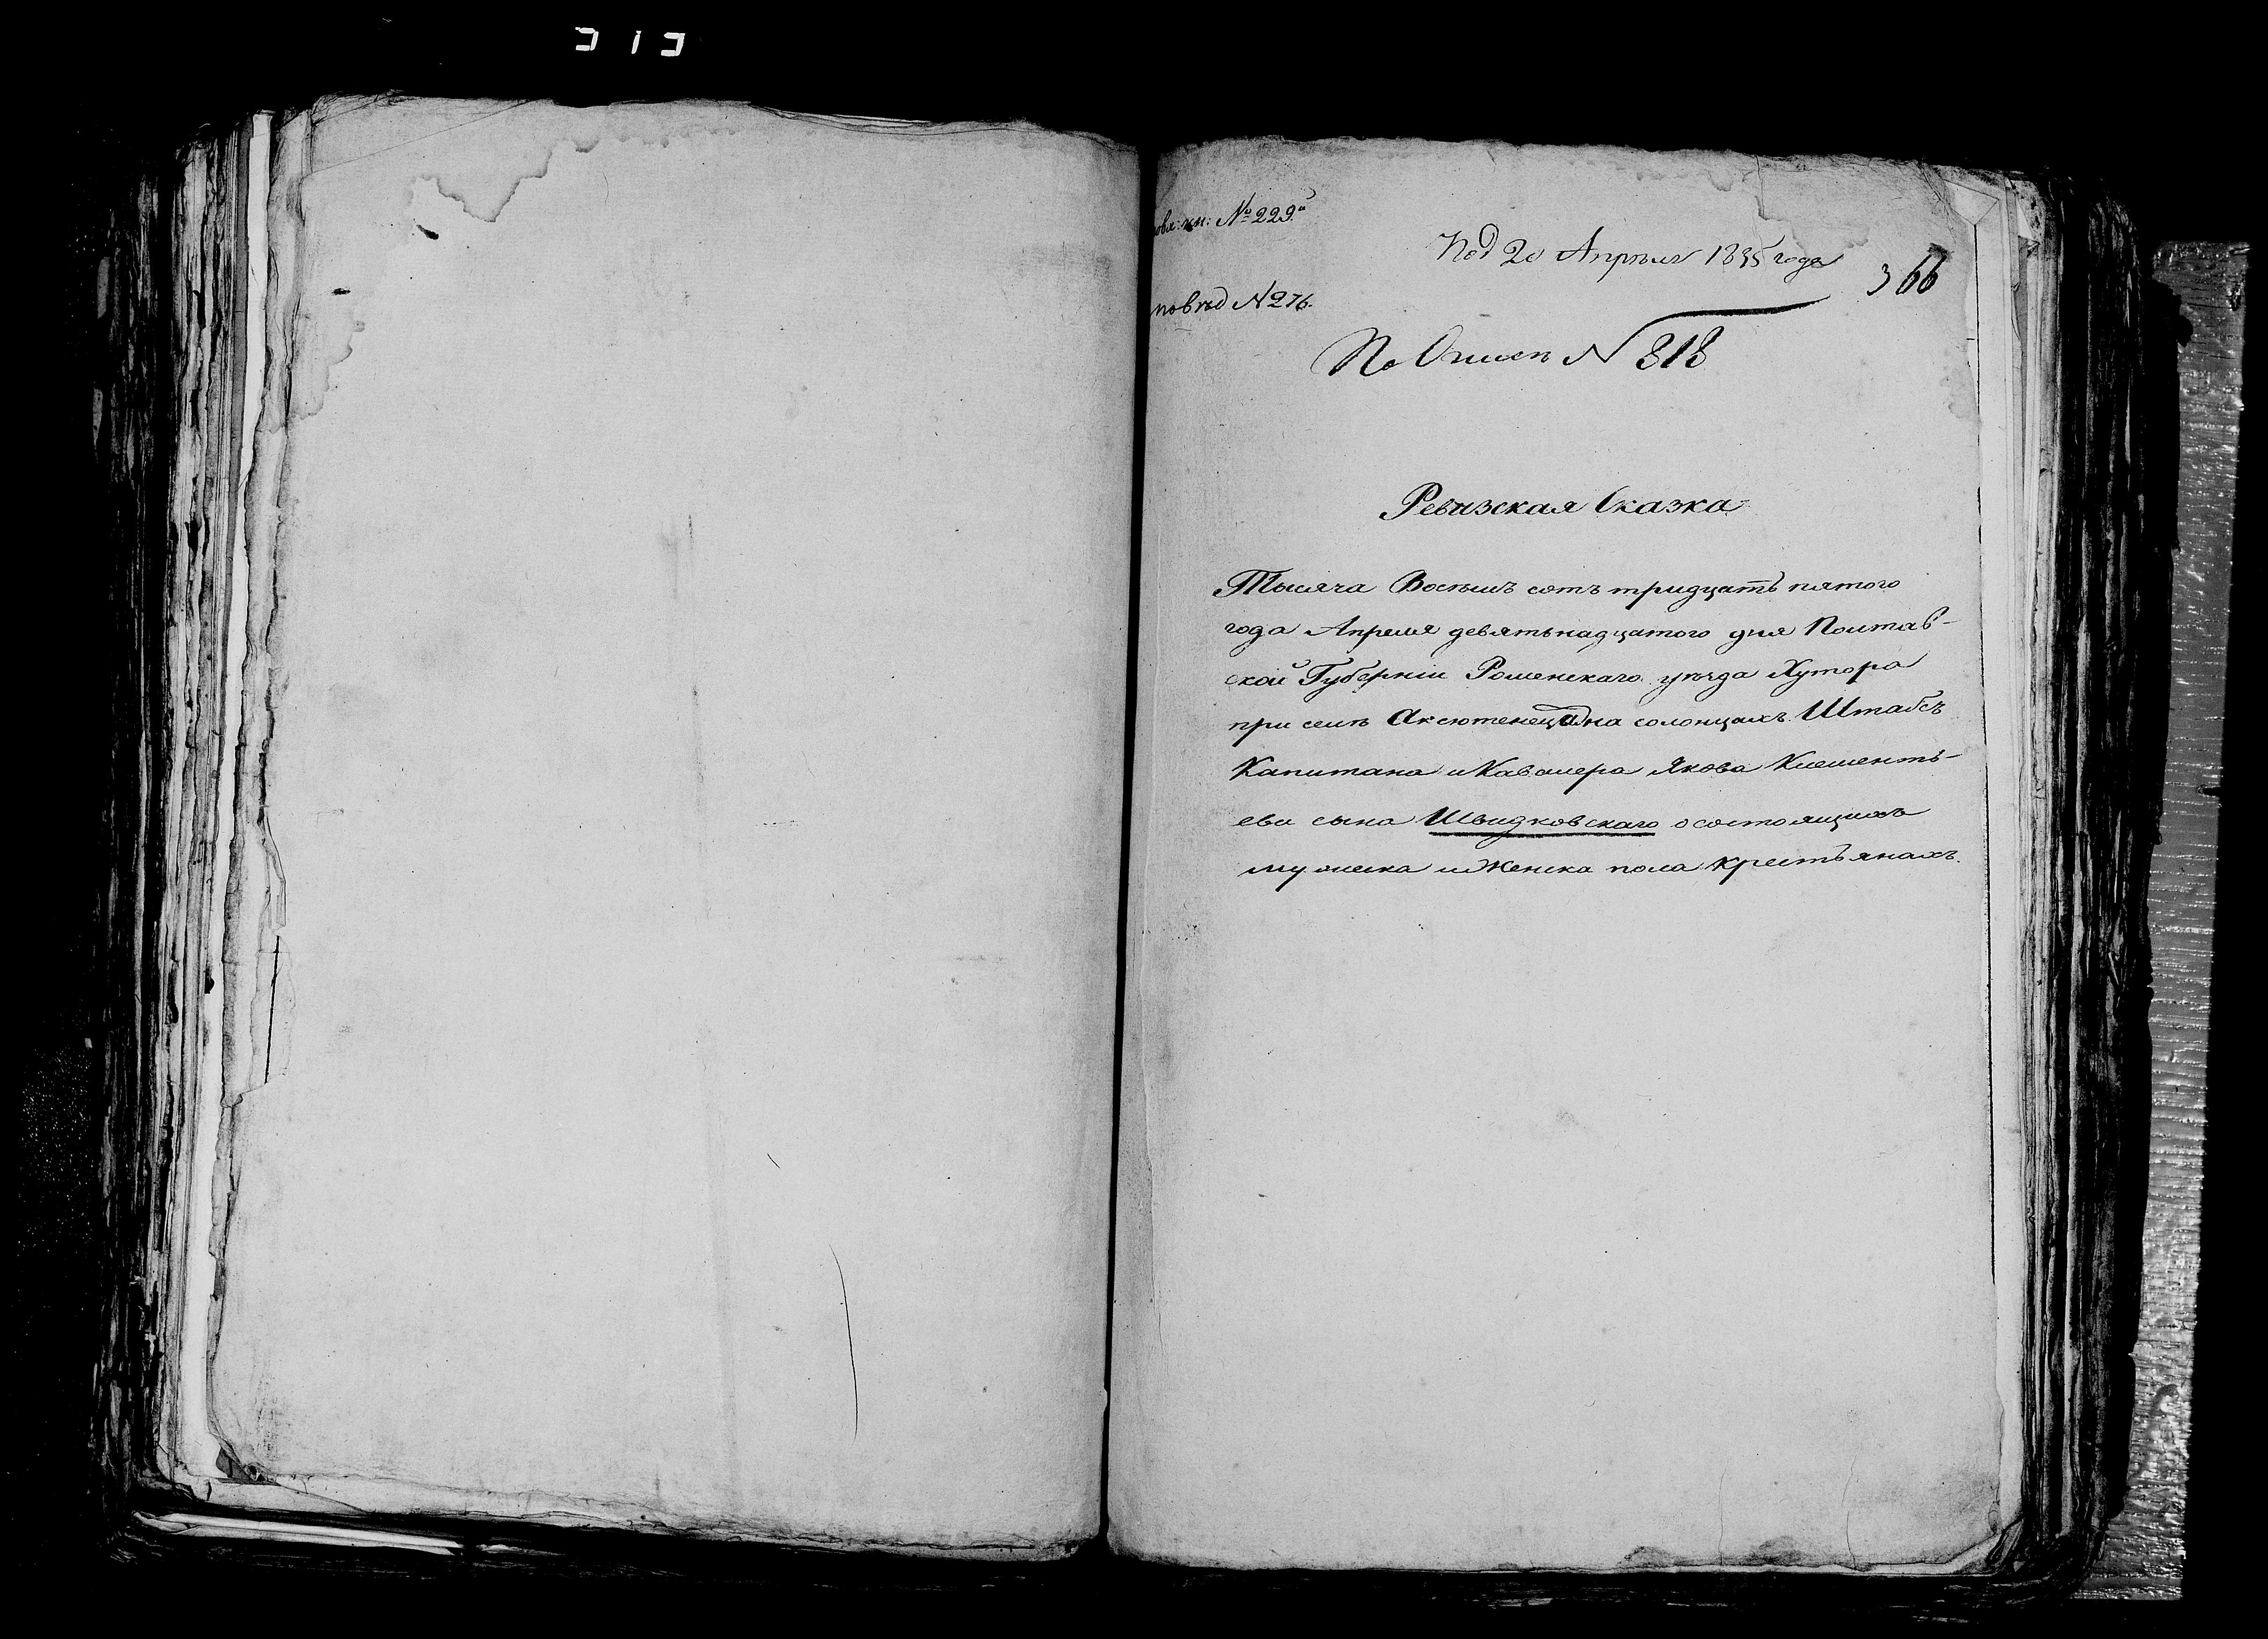 № 229.
Под 20 Апрѣля 1835 года
366
№ 276.
По Описи № 818
Ревизская Сказка
Тысяча Восемь сотъ тридцать пятого
года Апреля девятьнадцатого дня Полтав-
ской Губерніи Роменскаго уѣзда Хутора
при селѣ Аксютенец на солонцахъ Штабсъ
Капитана и Кавалера Якова Клементь-
ева сына Швидковскаго о состоящихъ
мужеска и Женска пола крестьянахъ.